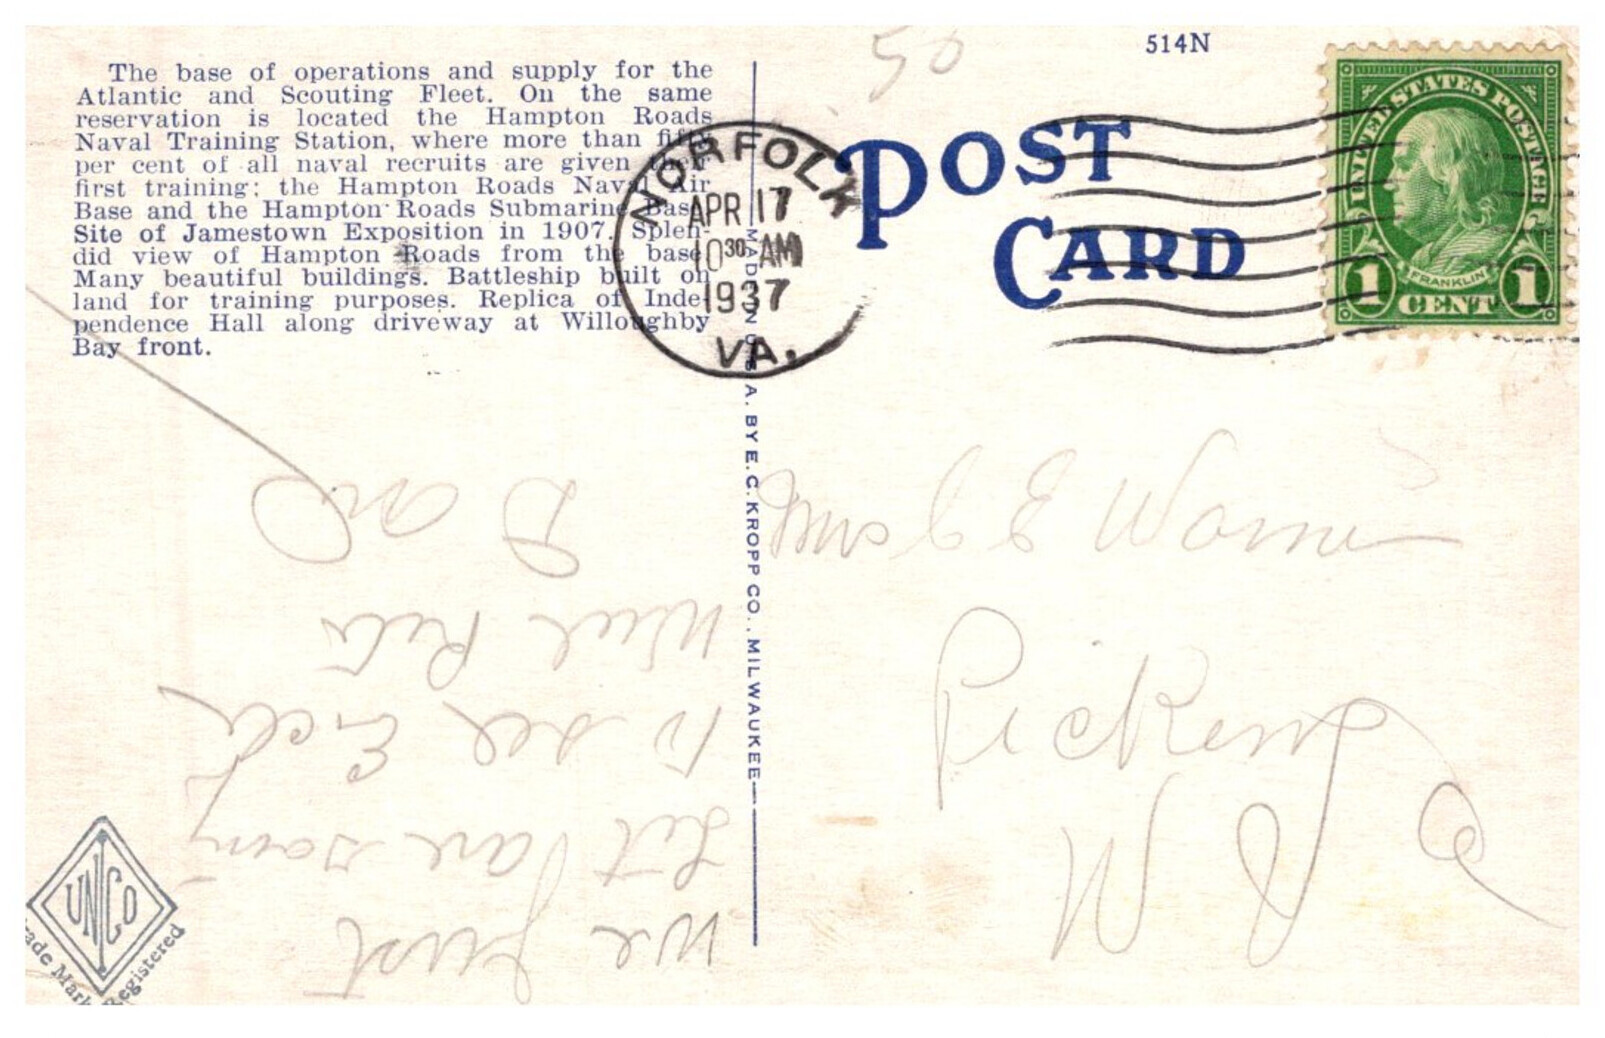 The base of operations and supply for the
Atlantic and Scouting Fleet. On the same
reservation is located the Hampton Roads
Naval Training Station, where more than fifty
per cent of all naval recruits are given their
first training; the Hampton Roads Naval Air
Base and the Hampton Roads Submarine Base
Site of Jamestown Exposition in 1907. Splen-
did view of Hampton Roads from the base
Many beautiful buildings. Battleship built on
land for training purposes. Replica of Inde-
pendence Hall along driveway at Willoughby
Bay front.
50
514N
POST
CARD
NORFOLK
APR 17
1030 AM
1937
VA.
UNITED STATES POSTAGE
FRANKLIN
1 CENT 1
MADE IN U.S.A. BY E. C. KROPP CO., MILWAUKEE
We just
are going
to see
Will
J E
Pickens
UNICO
Trade Mark Registered